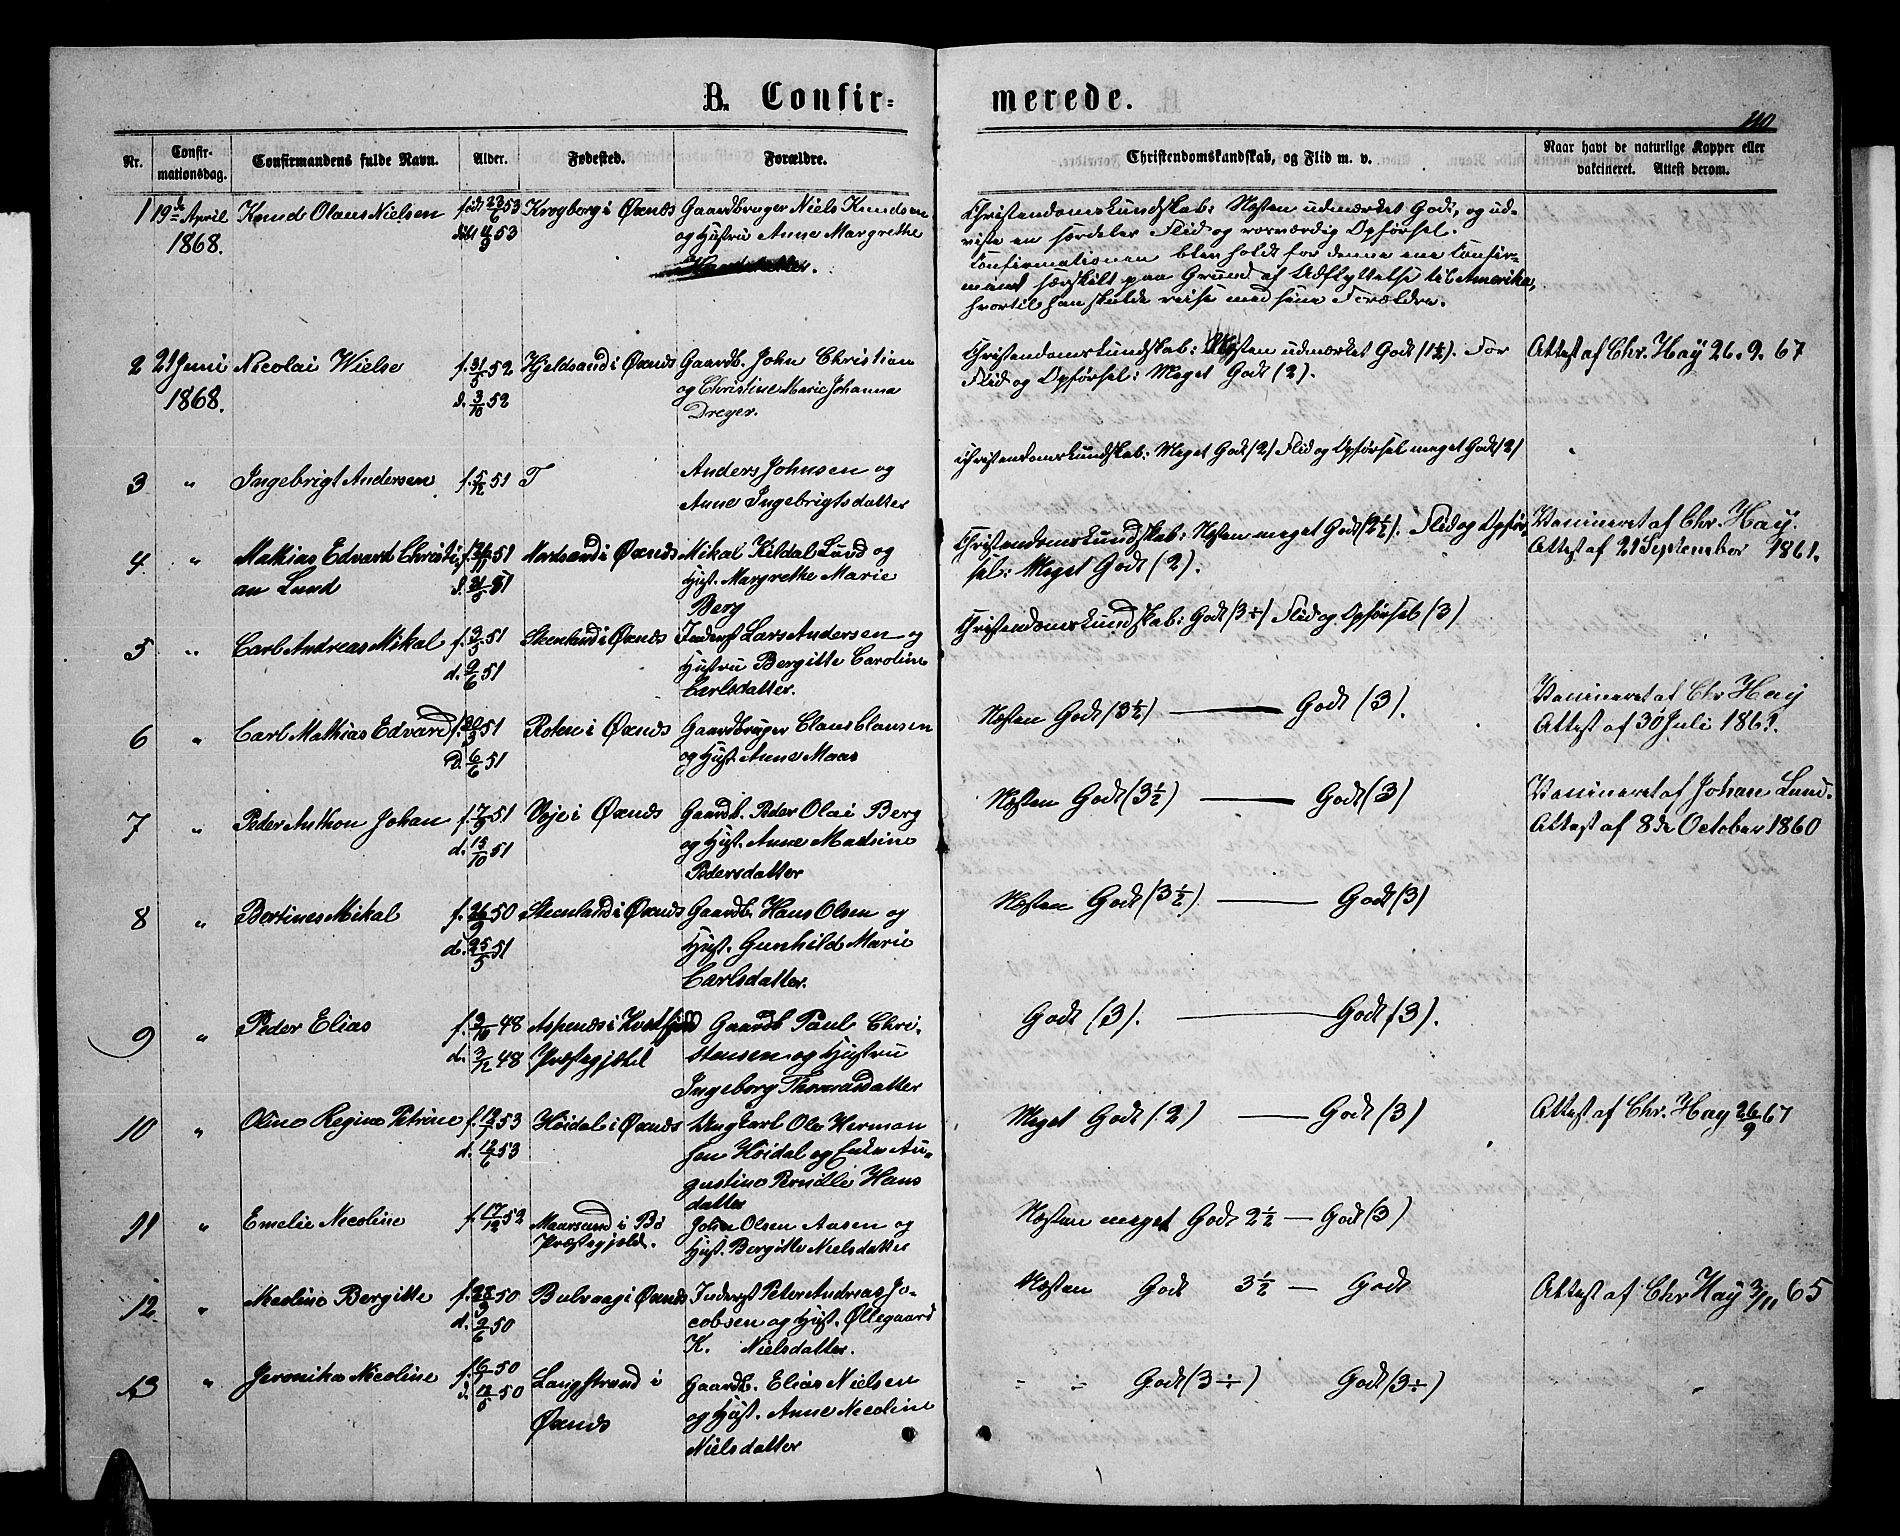 B. Confir-
merede.
Nr.
Confir-
mationsdag.
Confirmandens fulde Navn.
Alder.
Fødested.
Forældre.
Christendomskundskab, og Flid m. v.
Naar havt de naturlige Kopper eller
vakcineret. Attest derom.
1 19de April Knud Olaus Nielsen Krogberg i Øxnæs Gaardbruger Niels Knudsen
1868. og Hustru Anne Margrethe
Christendomskundskab: Næsten udmærket Godt, og ud-
viste en særdeles Flid og rosværdig Opførsel.
Confirmationen blev holdt for denne ene Confir-
mant særskilt paa Grund af Udflyttelse til Amerika,
hvortil han skulde reise med sine Forældre.
2 21 Juni Nicolai Wielse f. 31/5 52 Hjeldsand i Øxnæs Gaardb. John Christian
1868. d. 3/10 52 og Christine Marie Johanna
Dreyer.
Christendomskundskab: Næsten udmærket Godt (1½). For
Flid og Opførsel: Meget Godt (2).
Attest af Chr. Hay 26. 9. 67
3 " Ingebrigt Andersen f. 5/12 51 T Anders Johnsen og
Anne Ingebrigtsdatter
Christendomskundskab: Meget Godt (2) Flid og Opførsel meget Godt (2)
4 " Mathias Edvard Christi- 51 i Øxnæs Mikal Kildal Lund og
an Lund Hust. Margrethe Marie
Berg
Christendomskundskab: Næsten meget Godt (2½). Flid og Opfør-
sel: Meget Godt (2).
Vaccineret af Chr. Hay.
Attest af 21 September 1861.
5 " Carl Andreas Mikal 51 Steenland i Øxnæs Inderst Lars Andersen og
d. 9/6 51 Hustru Bergitte Caroline
Carlsdatter.
Christendomskundskab: Godt (3÷) Flid og Opførsel (3)
6 " Carl Mathias Edvard 51 i Øxnæs Gaardbruger Claus Clausen
d. 6/6 51 og Hust. Anne Maas
Næsten Godt (3½) — Godt (3).
Vaccineret af Chr Hay
Attest af 30 Juli 186
7 " Peder Anthon Johan f. 7/9 51 i Øxnæs Gaardb. Peder Olai Berg
d. 13/10 51 og Hust. Anne Madsine
Pedersdatter
Næsten Godt (3½) — Godt (3)
Vaccineret af Johan Lund.
Attest af 8de October 1860
8 " Bertines Mikal f. 26/9 50 Steenland i Øxnæs Gaardb. Hans Olsen og
d. 25/5 51 Hust. Gunhild Marie
Carlsdatter.
Næsten Godt (3½) — Godt (3)
9 " Peder Elias f. 9/10 48 Aspenæs i Kvæfjord Gaardb Paul Chri-
d. 3/12 48 Præstegjæld stensen og Hustru
Ingeborg Thomasdatter
Godt (3). — Godt (3).
10 " Oline Regine Petrine 53 Høidal i Øxnæs Ungkarl Ole Herman
d. 12/6 53 sen Høidal og Enke Au-
gustine Pernille Hans
datter
Meget Godt (2) — Godt (3)
Attest af Chr. Hay 26/9 67
11 " Emelie Nicoline f. 17/12 52 i Bø John Olsen Aasen og
Præstegjæld. Hust. Bergitte Nielsdatter
Næsten meget Godt 2½ — Godt (3)
12 " Bergitte 50 i Øxnæs Inderst Peter Andreas Ja-
d. 2/6 50 cobsen og Hust. Øllegaard
K. Nielsdatter.
Næsten Godt 3½ — Godt
Attest af Chr Hay 3/11 65
13 " Jeronika Nicoline 50 Langstrand i Gaardb. Elias Nielsen
50 Øxnæs og Hust. Anne Nicoline
Nielsdatter
" " Godt (3÷) Godt (3÷)